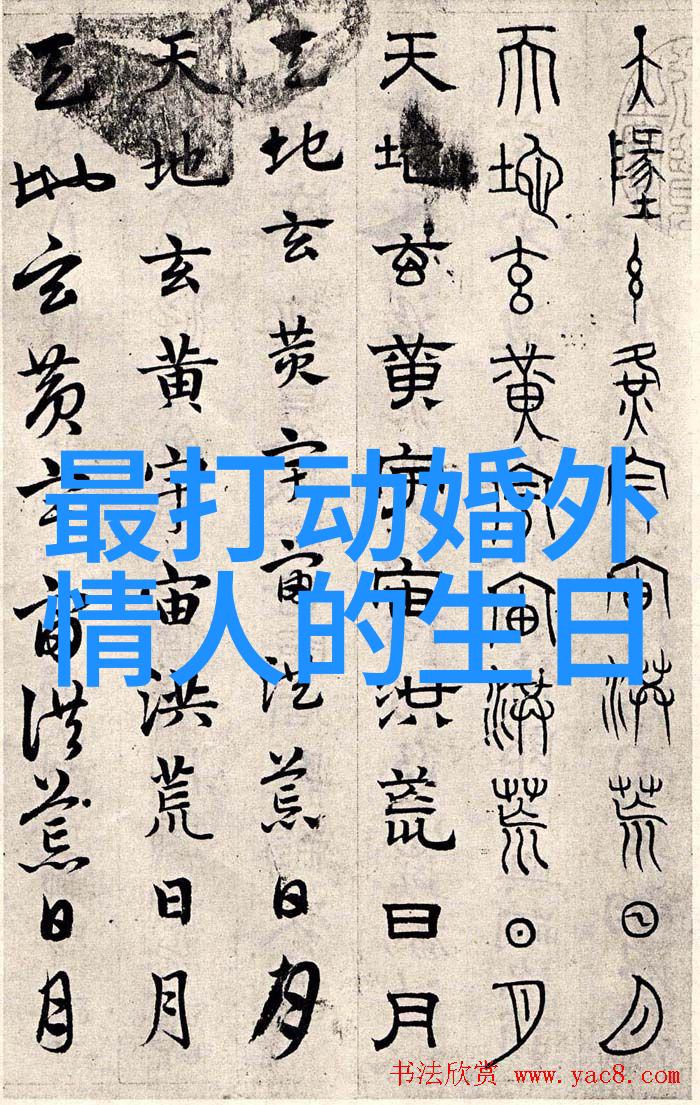 天墬玄黄宇宙洪荒日月
天地玄黄宇宙洪荒日月
天地玄黄宇宙洪荒日月
天地玄黄宇宙洪荒日月
天地玄黄宇宙洪荒日月
天地玄黄宇宙洪荒日月
最打动婚外
情人的生日
书法欣赏 www.yac8.com